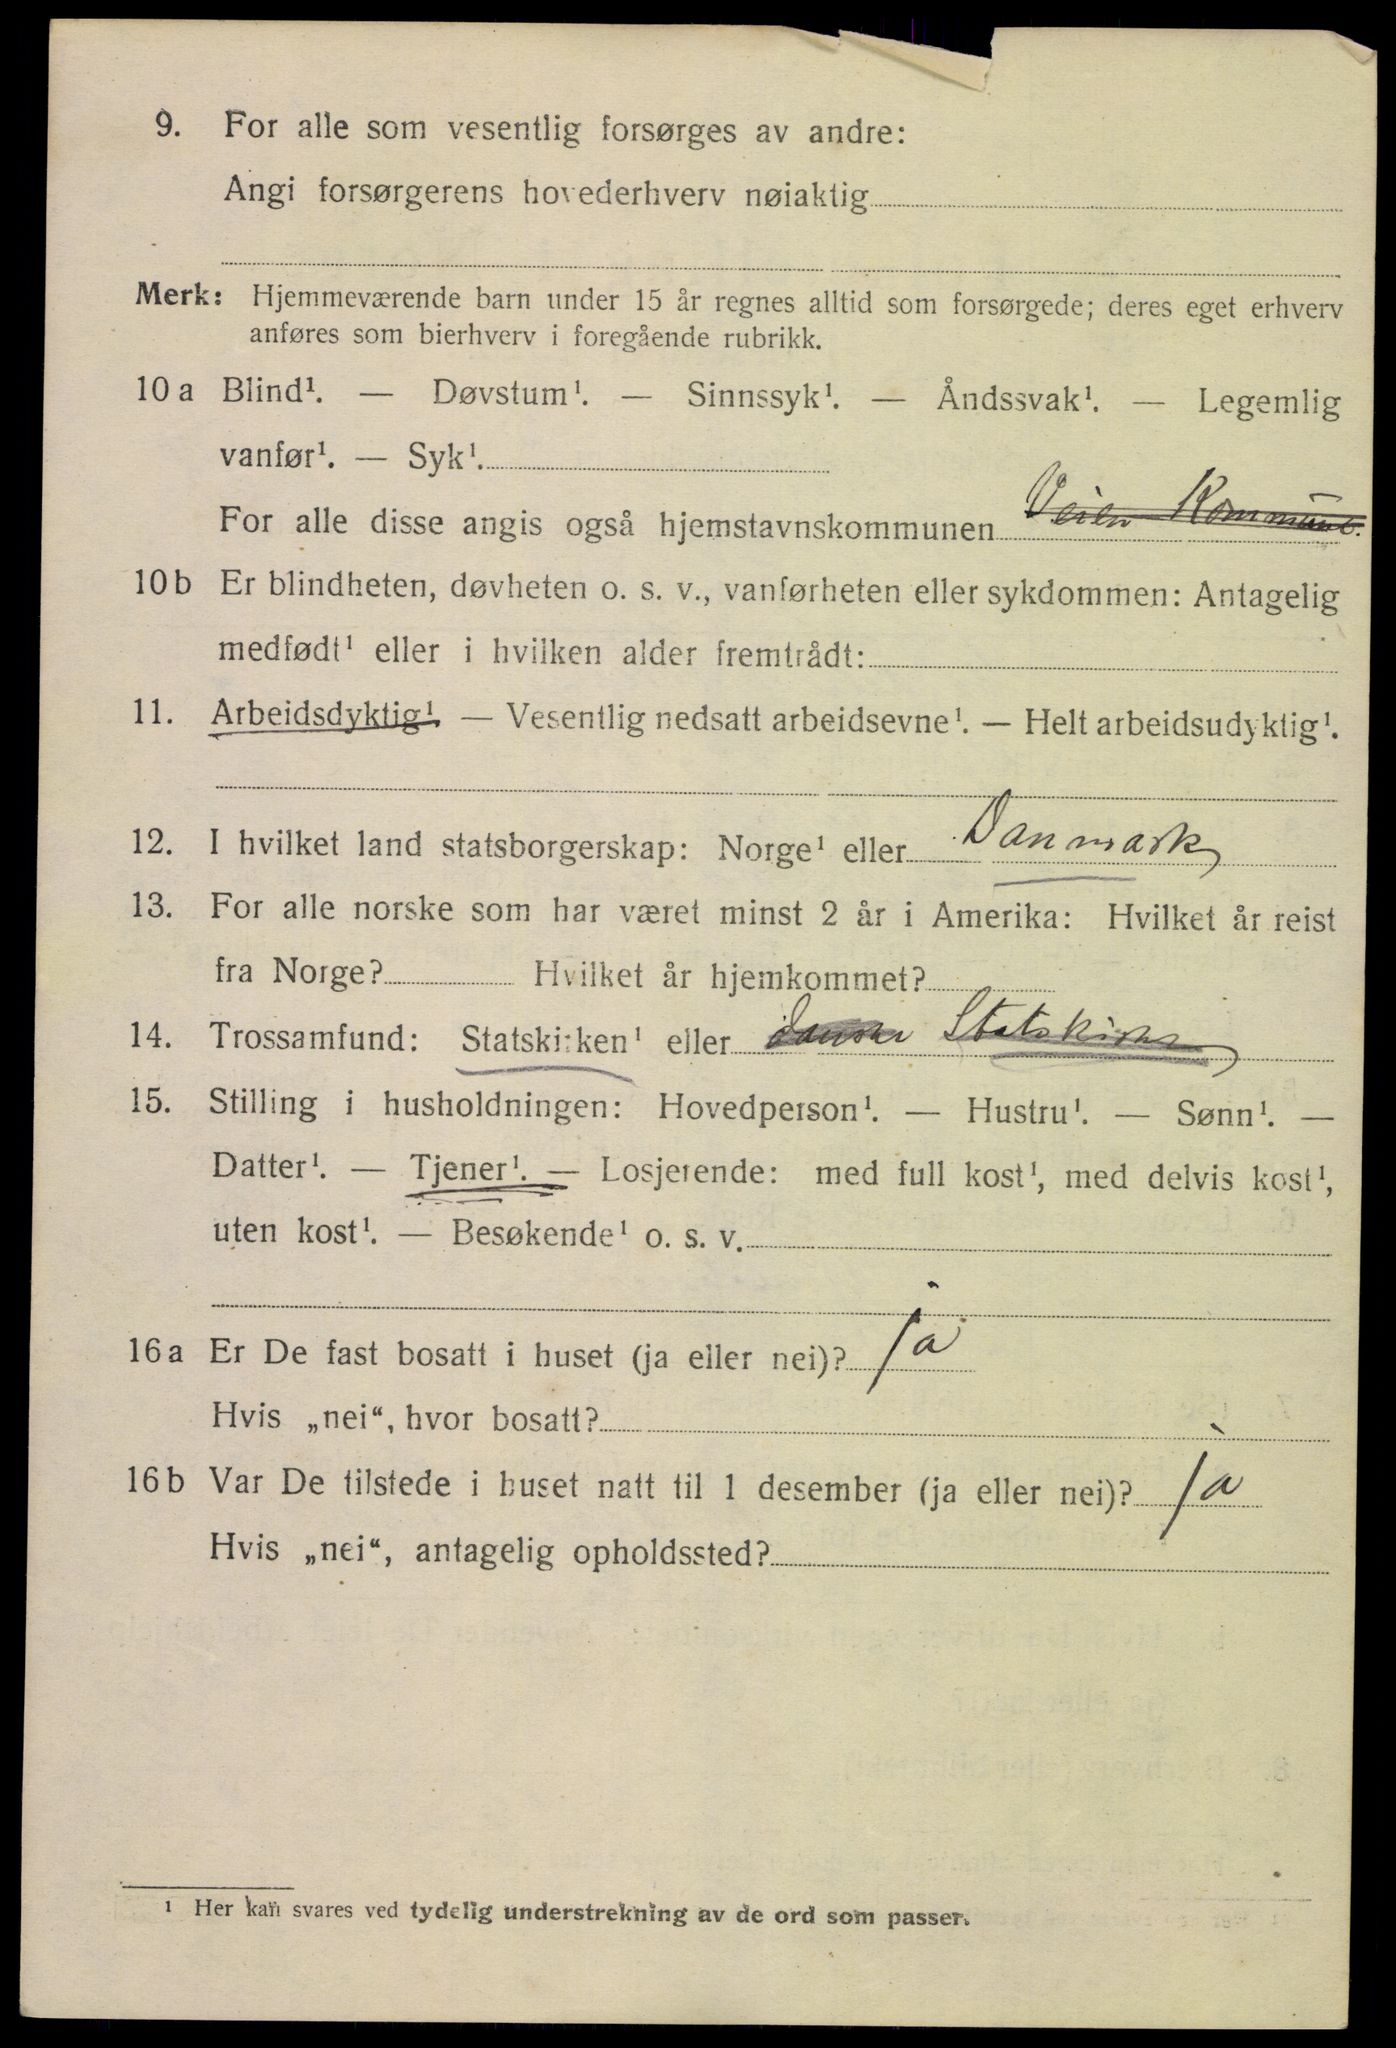 9. For alle som vesentlig forsørges av andre:
Angi forsørgerens hovederhverv nøiaktig
Merk: Hjemmeværende barn under 15 år regnes alltid som forsørgede; deres eget erhverv
anføres som bierhverv i foregående rubrikk.
10 a Blind¹. — Døvstum¹. — Sinnssyk¹. — Åndssvak¹. — Legemlig
vanfør¹. — Syk¹.
For alle disse angis også hjemstavnskommunen Veien Kommune.
10 b Er blindheten, døvheten o. s. v., vanførheten eller sykdommen: Antagelig
medfødt¹ eller i hvilken alder fremtrådt:
11. Arbeidsdyktig¹ — Vesentlig nedsatt arbeidsevne¹. — Helt arbeidsudyktig¹.
12. I hvilket land statsborgerskap: Norge¹ eller Danmark
13. For alle norske som har været minst 2 år i Amerika: Hvilket år reist
fra Norge? Hvilket år hjemkommet?
14. Trossamfund: Statskirken¹ eller danske Statskirke
15. Stilling i husholdningen: Hovedperson¹. — Hustru¹. — Sønn¹. —
Datter¹. — Tjener¹. — Losjerende: med full kost¹, med delvis kost¹,
uten kost¹. — Besøkende¹ o. s. v.
16 a Er De fast bosatt i huset (ja eller nei)? ja
Hvis „nei“, hvor bosatt?
16 b Var De tilstede i huset natt til 1 desember (ja eller nei)? ja
Hvis „nei“, antagelig opholdssted?
¹ Her kan svares ved tydelig understrekning av de ord som passer.